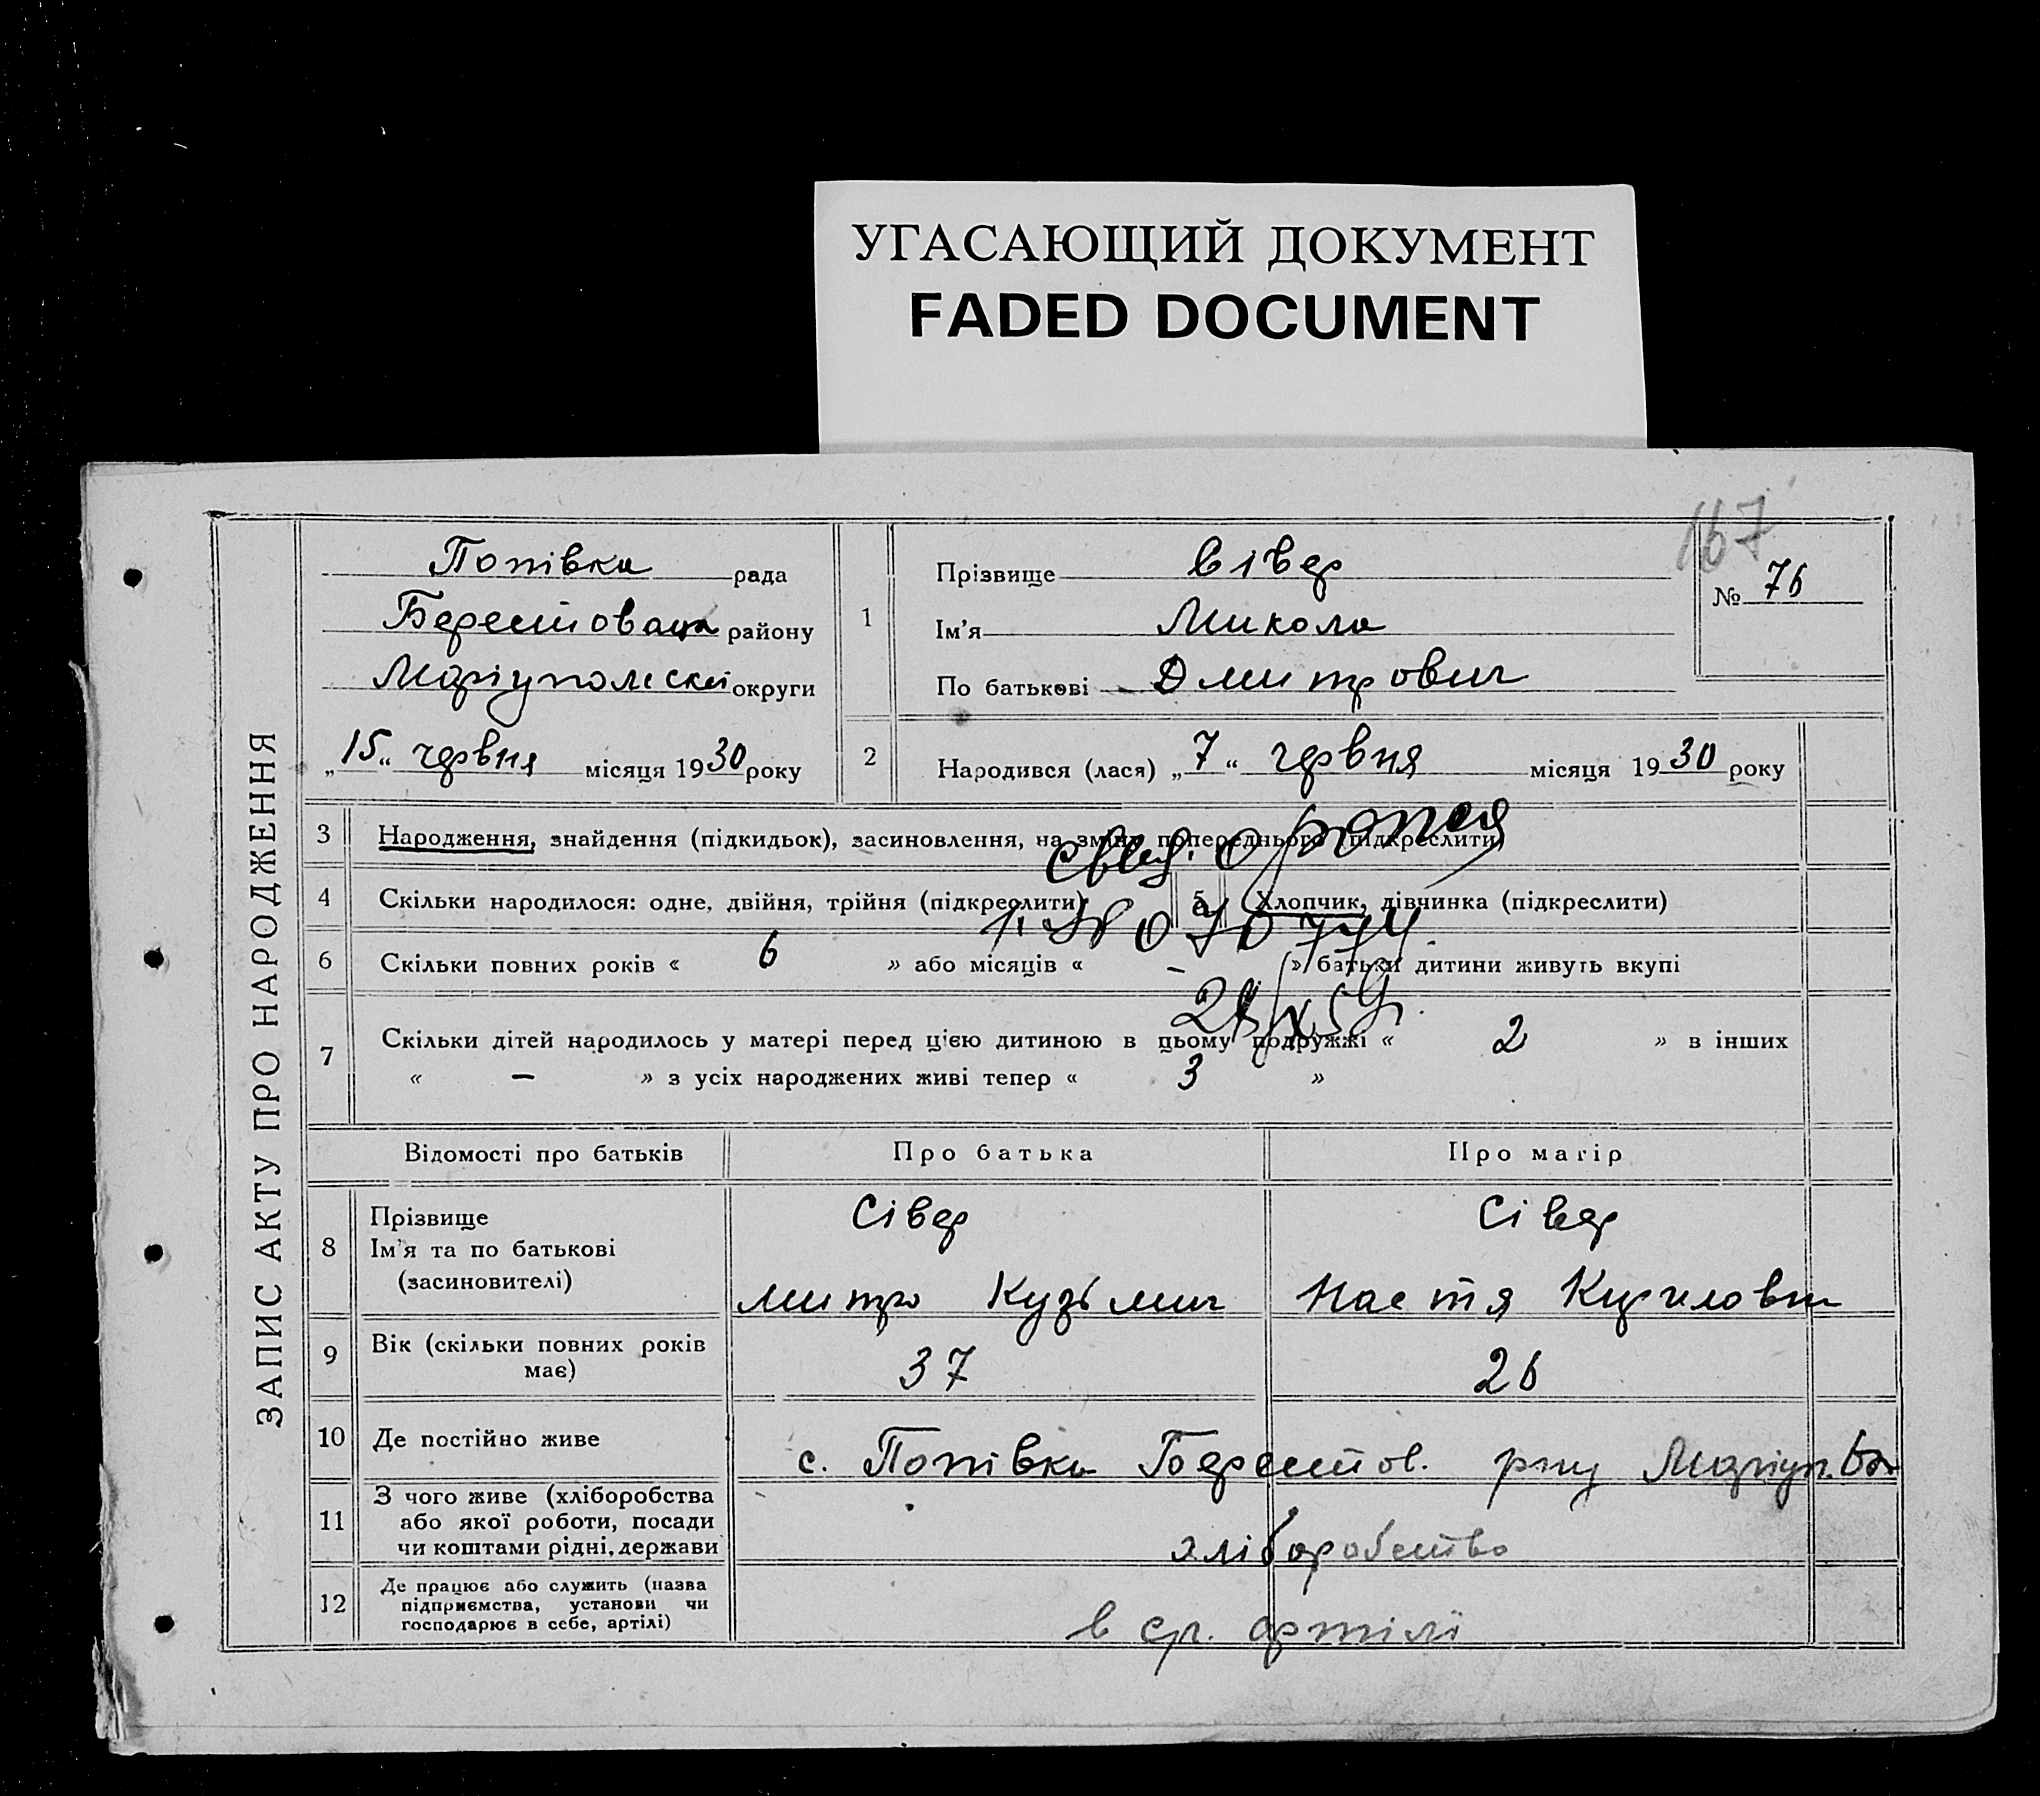 УГАСАЮЩИЙ ДОКУМЕНТ
FADED DOCUMENT
167
ЗАПИС АКТУ ПРО НАРОДЖЕННЯ
Попівка рада
району
округи
„15“ червня місяця 1930 року
1
Прізвище Сівер
Ім'я Микола
По батькові Дмитрович
№ 76
2 Народився (лася) „7“ червня місяця 1930 року
3 Народження, знайдення (підкидьок), засиновлення, на зміну попереднього (підкреслити)
4 Скільки народилося: одне, двійня, трійня (підкреслити) 5 Хлопчик, дівчинка (підкреслити)
6 Скільки повних років « 6 » або місяців « – » батьки дитини живуть вкупі
7 Скільки дітей народилось у матері перед цією дитиною в цьому подружжі « 2 » в інших
« – » з усіх народжених живі тепер « 3 »
Відомості про батьків Про батька Про матір
8 Прізвище Сівер Сівер
Ім'я та по батькові
(засиновителі)
Митро Кузьмич Настя Кириловн
9 Вік (скільки повних років
має) 37 26
10 Де постійно живе с. Попівка Берестов. рну Маріуп.
11 З чого живе (хліборобства
або якої роботи, посади
чи коштами рідні, держави хліборобство
12 Де працює або служить (назва
підприємства, установи чи
господарює в себе, артілі) в артілі